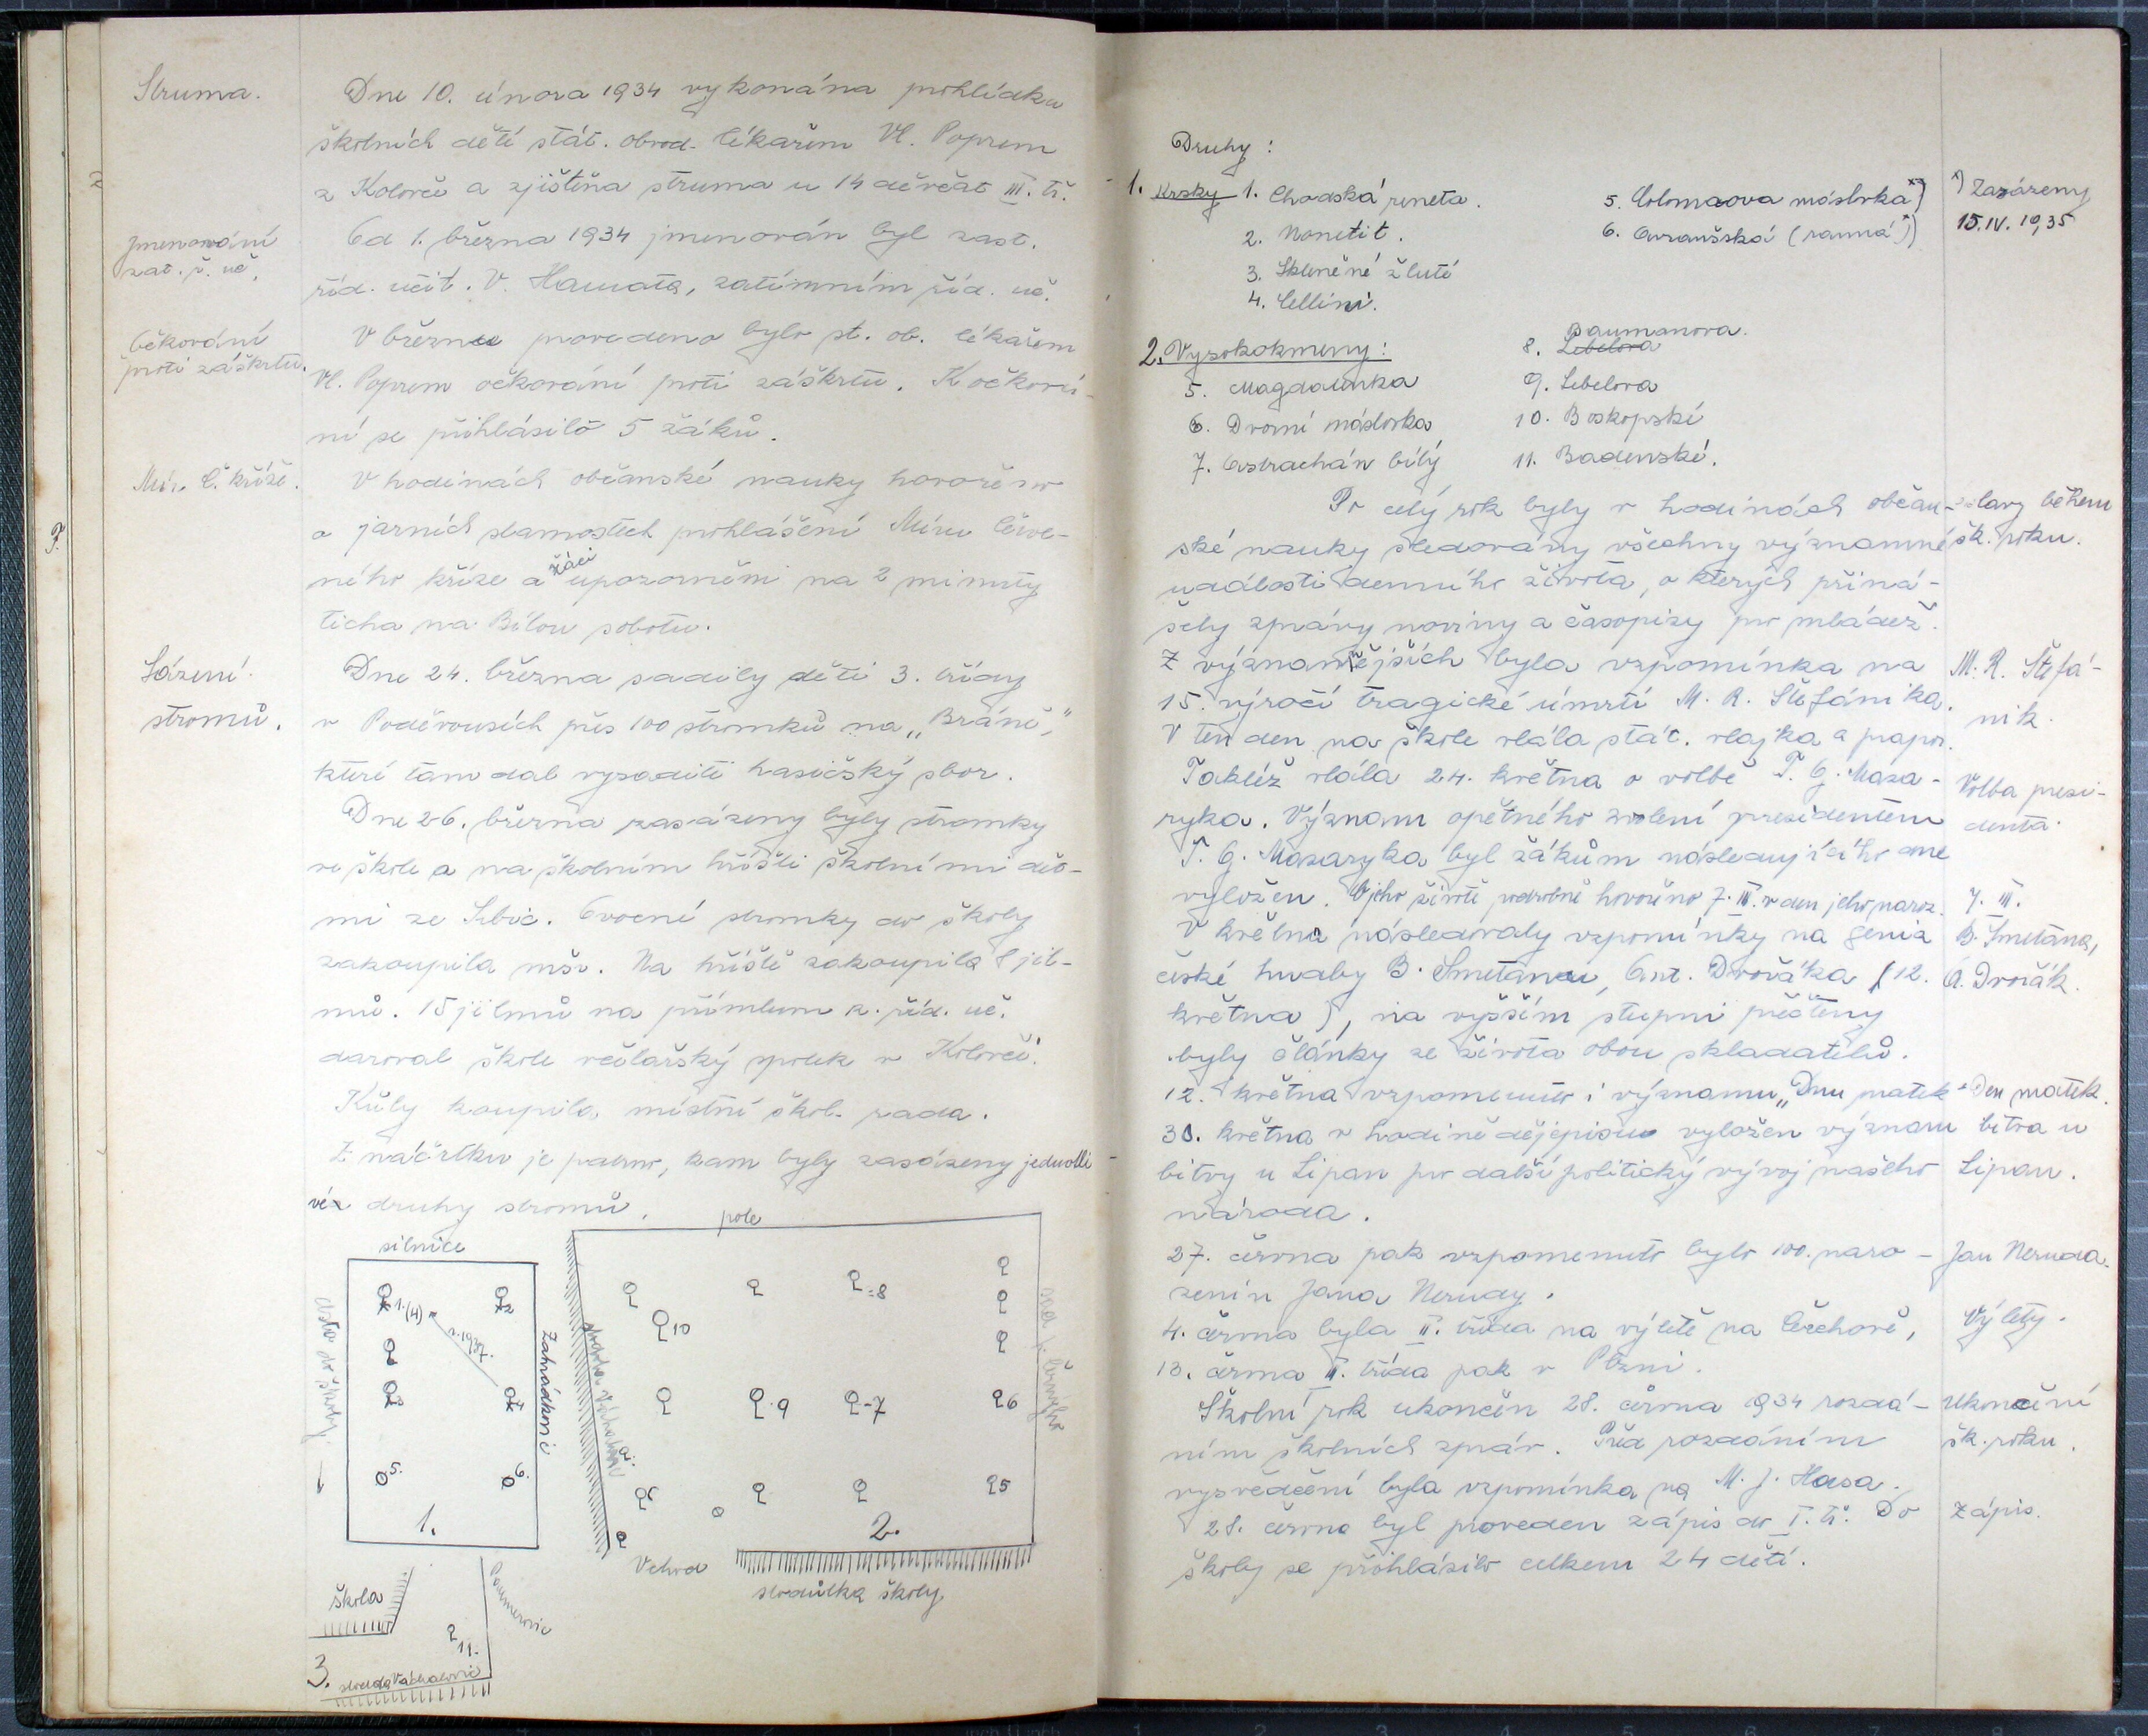 Struma.
Dne 10. února 1934 vykonána prohlídka
školních dětí stát. obvod. lékařem Vl. Poprem
z Kolovče a zjištěna struma u 14 děvčat III. tř.
Jmenování
zat. ř. uč.
Od 1. března 1934 jmenován byl zast.
říd. učit. V. zatímním říd. uč.
Očkování
proti záškrtu.
V březnu provedeno bylo st. ob. lékařem
Vl. Poprem očkování proti záškrtu. K očková-
ní se přihlásilo 5 žáků.
Mír Č. kříže.
V hodinách občanské nauky hovořeno
o jarních slavnostech prohlášení Míru Červe-
ného kříže a žáci upozorněni na 2 minuty
ticha na Bílou sobotu.
Sázení
stromů.
Dne 24. března sadily děti 3. třídy
v Poděvousích přes 100 stromků na „Bráně",
které tam dal vysaditi hasičský sbor.
Dne 26. března zasázeny byly stromky
ve škole a na školním hřišti školními dět-
mi ze Srbic. Ovocné stromky do školy
zakoupila mšr. Na hřiště zakoupila 8 jil-
mů. 15 jilmů na přímluvu z. říd. uč.
daroval škole včelařský spolek v Kolovči.
Kůly koupila místní škol. rada.
Z náčrtku je patrno, kam byly zasázeny jednotli-
vé druhy stromů.
silnice
pole
1. (4)
2
r. 1937.
3
4
5.
6.
1.
cesta do školy
Zahrádkovic
=8
10
9
7
6
5
2.
Vchod
stodůlka školy
škola
11.
3. stodola Váchalovic
Druhy:
1. Krsky 1. Chodská reneta.
2. Nonetit.
3. Skleněné žluté
4. Cellini.
5. Colomaova máslovka*)
6. Avranšská (ranná*))
*) Zasázeny
15. IV. 1935
2. Vysokokmeny:
5. Magdalenka
6. Dvorní máslovka
7. Astrachán bílý
Baumanova.
8. Lebelova
9. Lebelova
10. Boskopské
11. Badenské.
Po celý rok byly v hodinách občan-
ské nauky sledovány všechny významné
události denního života, o kterých přiná-
šely zprávy noviny a časopisy pro mládež.
Oslavy během
šk. roku.
Z významnějších byla vzpomínka na
15. výročí tragické úmrtí M. R. Štefánika.
V ten den na škole vlála stát. vlajka a prapor.
M. R. Štefá-
nik.
Taktéž vlála 24. května o volbě T. G. Masa-
ryka. Význam opětného zvolení presidentem
T. G. Masaryka byl žákům následujícího dne
vyložen. O jeho životě podrobně hovořeno 7. III. v den jeho naroz.
Volba presi-
denta.
7. III.
V květnu následovaly vzpomínky na genia
české hudby B. Smetanu, Ant. Dvořáka (12.
května), na vyšším stupni přečteny
byly články ze života obou skladatelů.
B. Smetana,
A. Dvořák.
12. května vzpomenuto i významu „Dne matek"
Den matek.
30. května v hodině dějepisu vyložen význam
bitvy u Lipan pro další politický vývoj našeho
národa.
bitva u
Lipan.
27. června pak vzpomenuto bylo 100. naro-
zenin Jana Nerudy.
Jan Neruda.
4. června byla II. třída na výletě na Čerchově,
13. června III. třída pak v Plzni.
Výlety.
Školní rok ukončen 28. června 1934 rozdá-
ním školních zpráv. Před rozdáním
vysvědčení byla vzpomínka na M. J. Husa.
Ukončení
šk. roku.
28. června byl proveden zápis do I. tř. Do
školy se přihlásilo celkem 24 dětí.
Zápis.